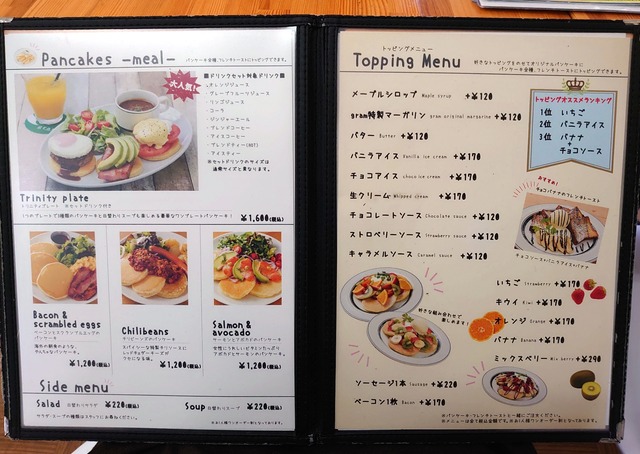 Pancakes -meal-
パンケーキ全種、フレンチトーストにトッピングできます。
大人気!
■ドリンクセット対象ドリンク■
オレンジジュース
グレープフルーツジュース
リンゴジュース
コーラ
ジンジャーエール
ブレンドコーヒー
アイスコーヒー
ブレンドティー(HOT)
アイスティー
※セットドリンクのサイズは
通常サイズと異なります。
Trinity plate
トリニティプレート ※セットドリンク付き
1つのプレートで3種類のパンケーキと日替わりスープも楽しめる豪華なワンプレートパンケーキ!
¥1,600(税込)
Bacon &
scrambled eggs
ベーコンとスクランブルエッグの
パンケーキ
¥1,200(税込)
Chilibeans
チリビーンズのパンケーキ
¥1,200(税込)
Salmon &
avocado
サーモンとアボカドのパンケーキ
¥1,200(税込)
Side menu
Salad 日替わりサラダ ¥220(税込)
Soup 日替わりスープ ¥220(税込)
サラダ・スープの種類はスタッフにお尋ねください。
トッピングメニュー
Topping Menu
好きなトッピングをのせてオリジナルパンケーキに
パンケーキ全種、フレンチトーストにトッピングできます。
メープルシロップ Maple syrup +¥120
gram特製マーガリン gram original margarine +¥120
バター Butter +¥120
バニラアイス Vanilla ice cream +¥170
チョコアイス choco ice cream +¥170
生クリーム Whipped cream +¥170
チョコレートソース Chocolate sauce +¥120
ストロベリーソース Strawberry sauce +¥120
キャラメルソース Caramel sauce +¥120
トッピングオススメランキング
1位 いちご
2位 バニラアイス
3位 バナナ
+
チョコソース
おすすめ!
チョコバナナのフレンチトースト
チョコソース+バニラアイス+バナナ
好きな組み合わせで
楽しめます!
いちご Strawberry +¥170
キウイ Kiwi +¥170
オレンジ Orange +¥170
バナナ Banana +¥170
ミックスベリー Mix berry +¥290
ソーセージ1本 Sausage +¥220
ベーコン1枚 Bacon +¥170
※パンケーキ・フレンチトーストと一緒にご注文ください。